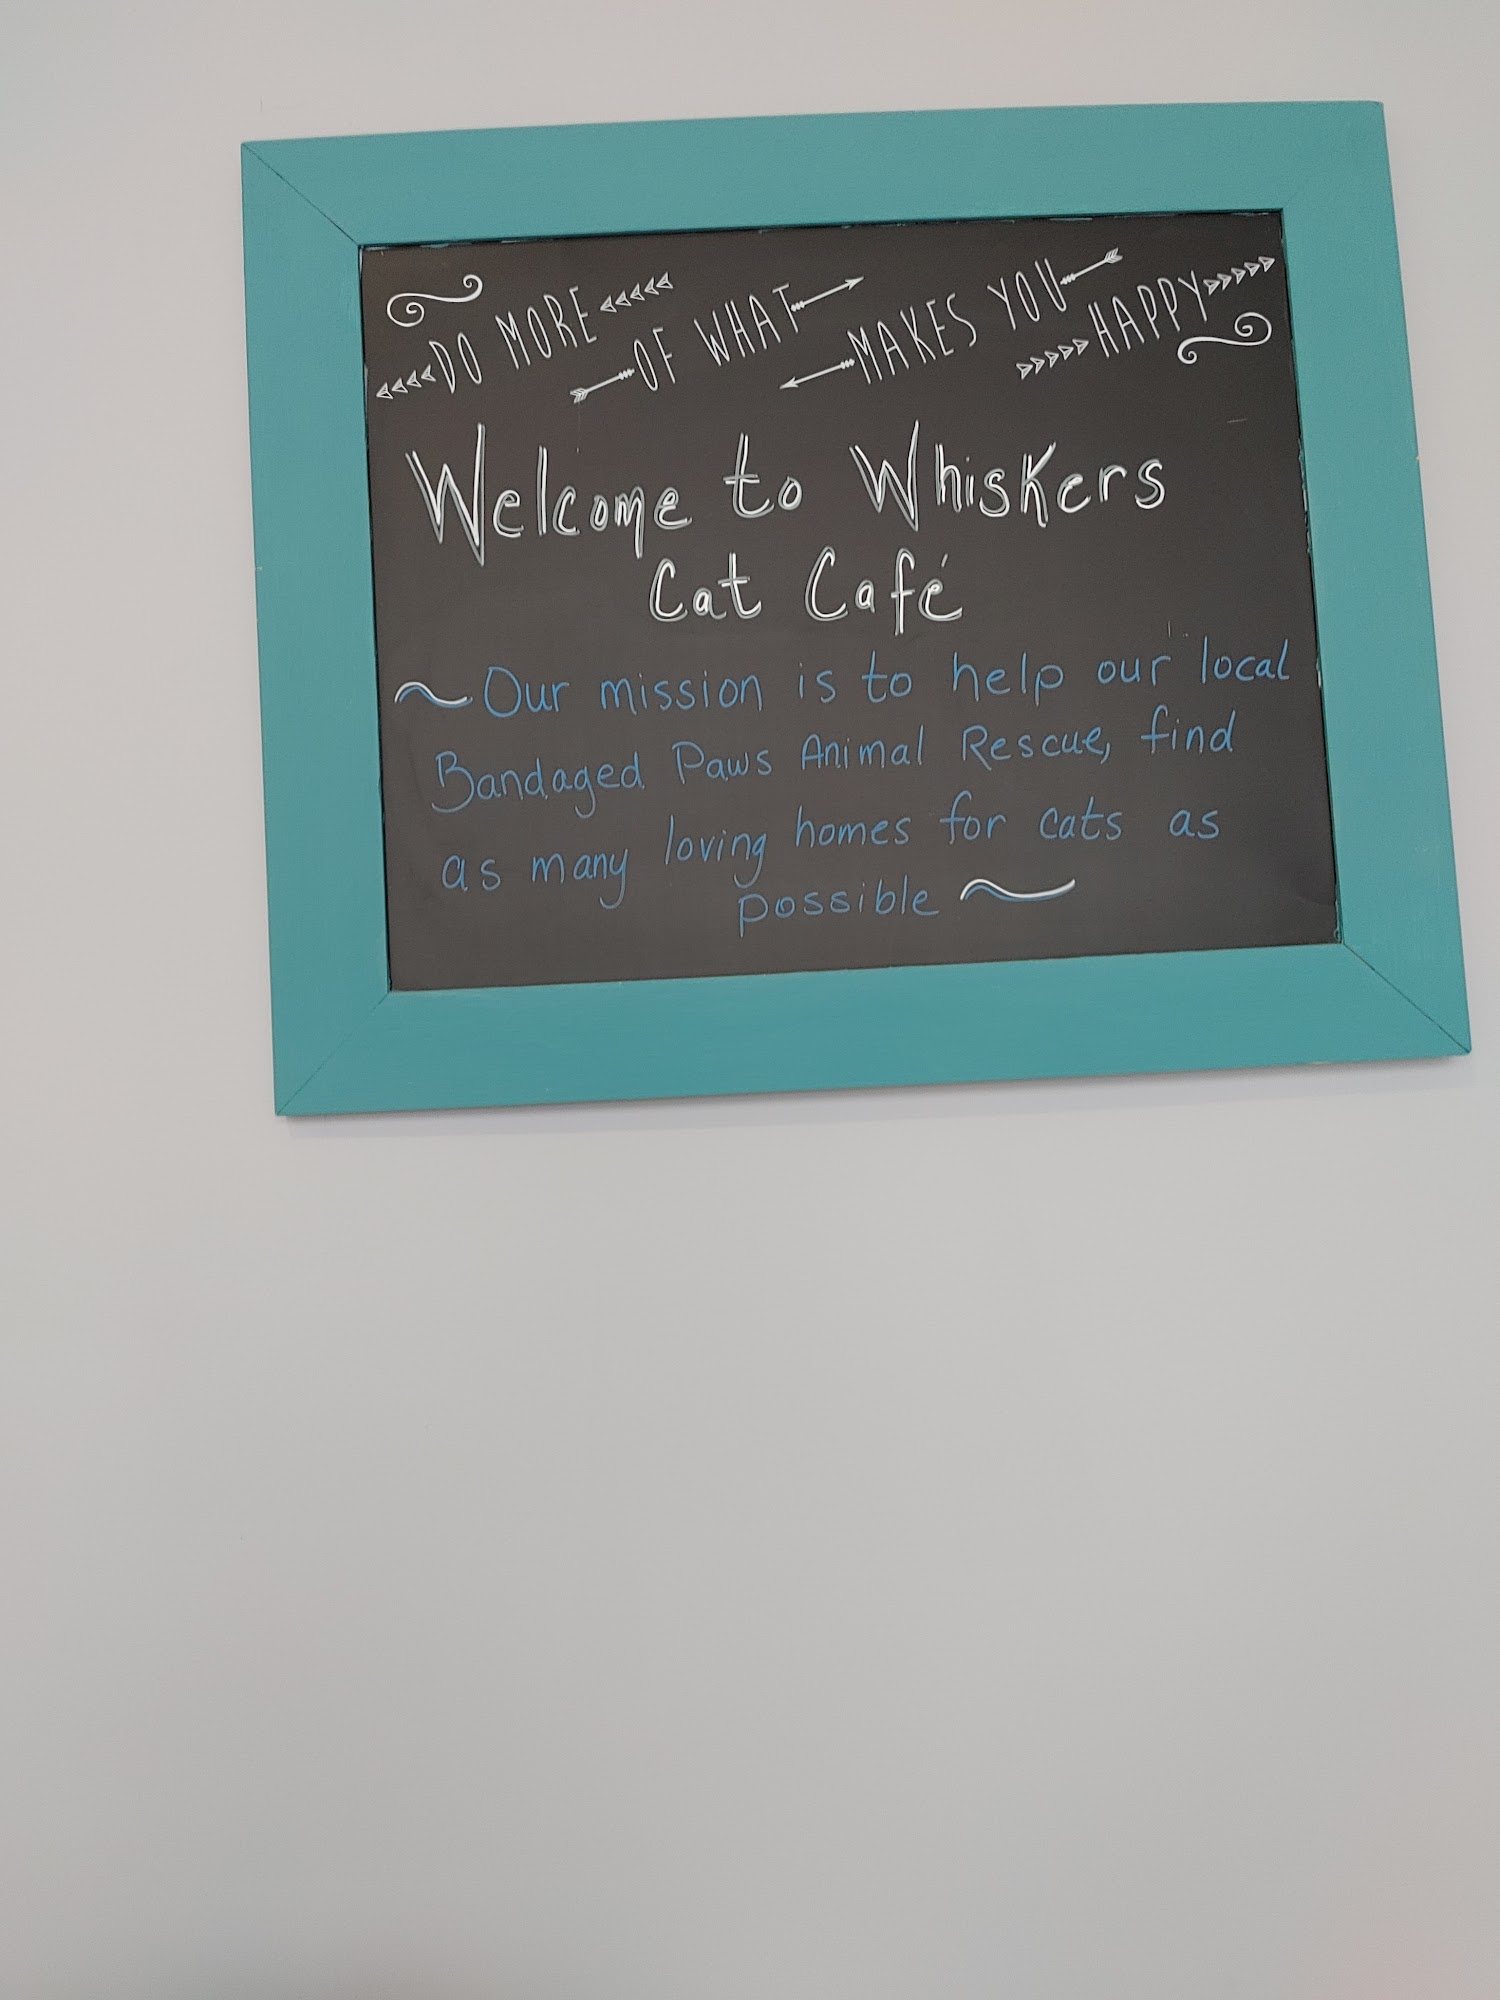 DO MORE OF WHAT MAKES YOU HAPPY
Welcome to Whiskers
Cat Café
Our mission is to help our local
Bandaged Paws Animal Rescue, find
as many loving homes for cats as
possible